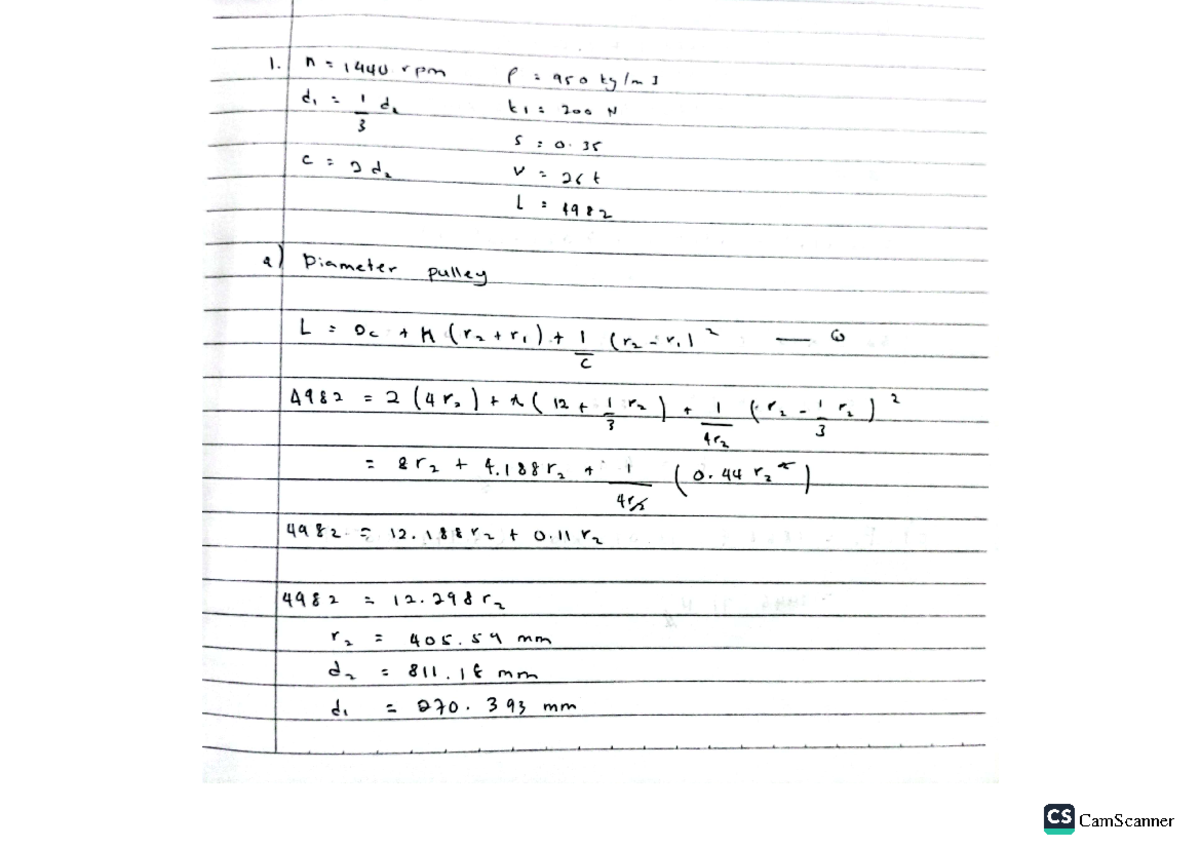 1. n = 1440 rpm ρ = 950 kg/m3
d₁ = 1/3 d₂ t1 = 200 N
s = 0.35
c = 2 d₂ v = 26t
L = 4982
a) Diameter pulley
L = 2c + π (r₂ + r₁) + 1/c (r₂ - r₁)²
4982 = 2 (4r₂) + π ( r2 + 1/3 r₂ ) + 1/4r₂ ( r₂ - 1/3 r₂ )²
= 8r₂ + 4.188r₂ + 1/4r₂ ( 0.44 r₂² )
4982 = 12.188r₂ + 0.11 r₂
4982 = 12.298r₂
r₂ = 405.59 mm
d₂ = 811.18 mm
d₁ = 270.393 mm
CS CamScanner